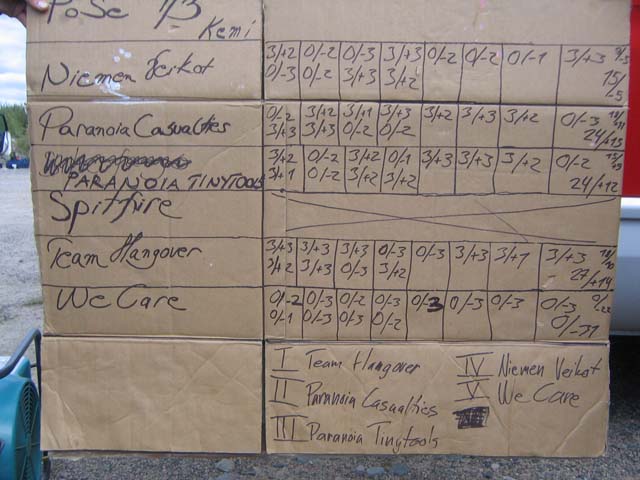 PoSe
Kemi
Niemen Veikot
3/+2 0/-3 0/-3 3/+3 0/-2 0/-2 0/-1 3/+3
0/-3 0/-2 3/+3 3/+2 15/-5
Paranoia Casualties
0/-2 3/+2 3/+1 3/+3 3/+2 3/+3 3/+2 0/-3
3/+3 3/+3 0/-2 0/-2 24/+13
PARANOIA TINYTOOLS
3/+2 0/-2 3/+2 0/-1 3/+3 3/+3 3/+2 0/-2
3/+1 0/-2 3/+2 3/+2 24/+12
Spitfire
Team Hangover
3/+3 3/+3 3/+3 0/-3 0/-3 3/+3 3/+1 3/+3
3/+2 3/+3 0/-3 3/+2 27/+14
We Care
0/-2 0/-3 0/-2 0/-3 0/-3 0/-3 0/-3 0/-3
0/-1 0/-3 0/-3 0/-2 0/-31
I Team Hangover
II Paranoia Casualties
III Paranoia Tinytools
IV Niemen Veikot
V We Care